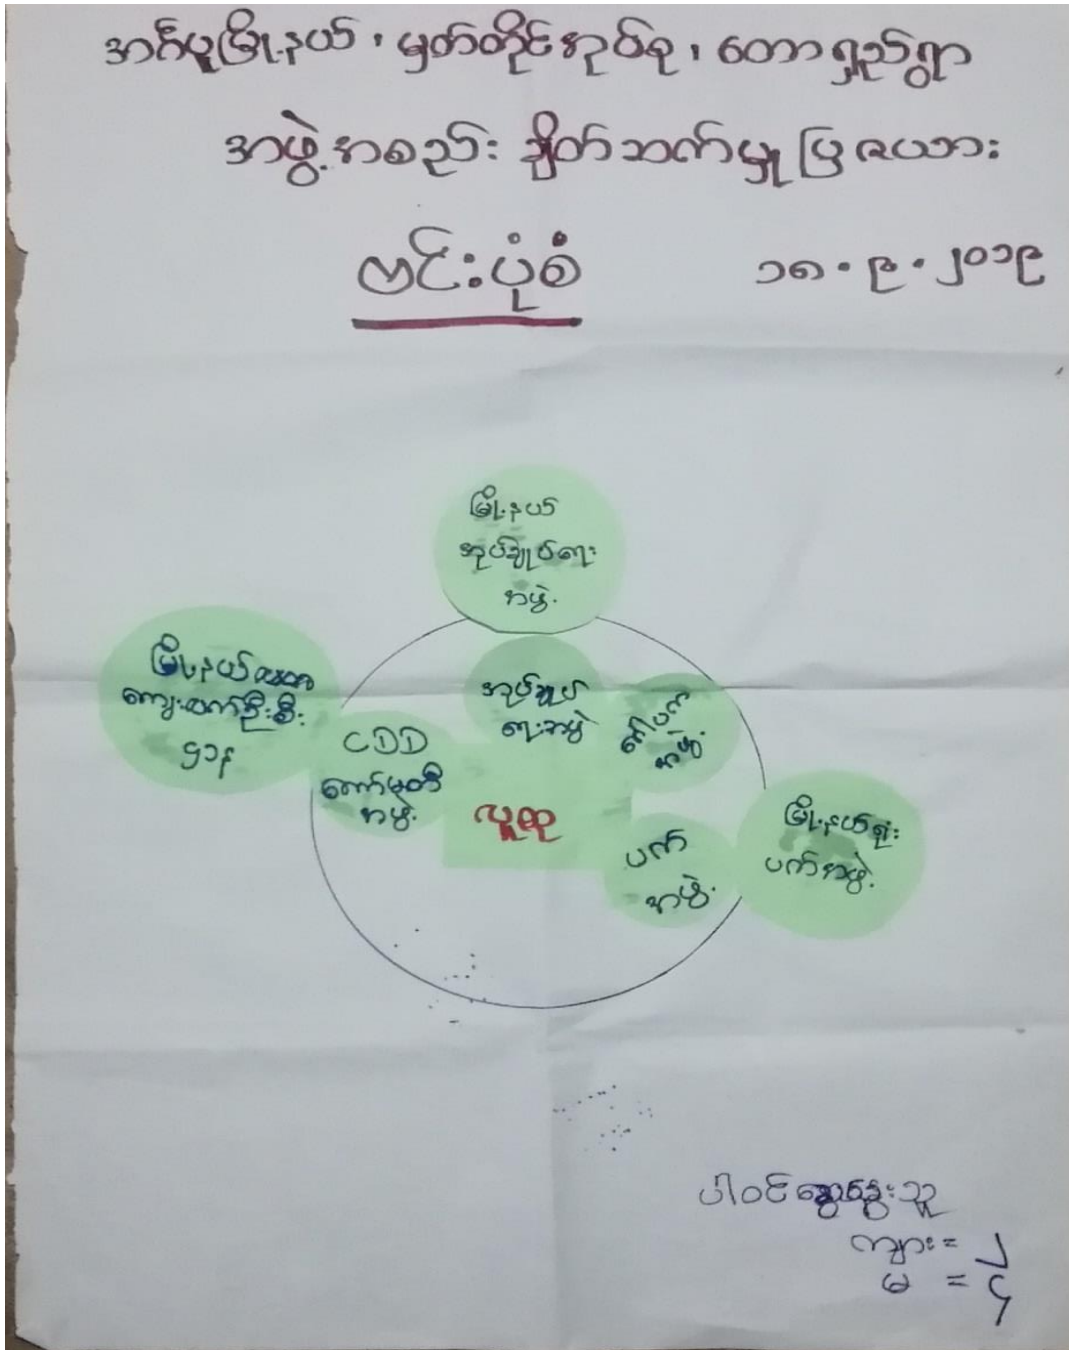 အင်္ဂပူမြို့နယ်၊ မှတ်တိုင်အုပ်စု၊ တောရှည်ရွာ
အဖွဲ့အစည်း ချိတ်ဆက်မှုပြဇယား
ဗင်းပုံစံ
၁၈.၉.၂၀၁၉
မြို့နယ်
အုပ်ချုပ်ရေး
အဖွဲ့
မြို့နယ်
ကျေးလက်ဦးစီး
ဌာန
CDD
ကော်မတီ
အဖွဲ့
အုပ်ချုပ်
ရေးအဖွဲ့
အဖွဲ့
လူထု
ပတ်
အဖွဲ့
မြို့နယ်
ပတ်အဖွဲ့
ပါဝင်ဆွေးနွေးသူ
ကျား = ၂
မ = ၄